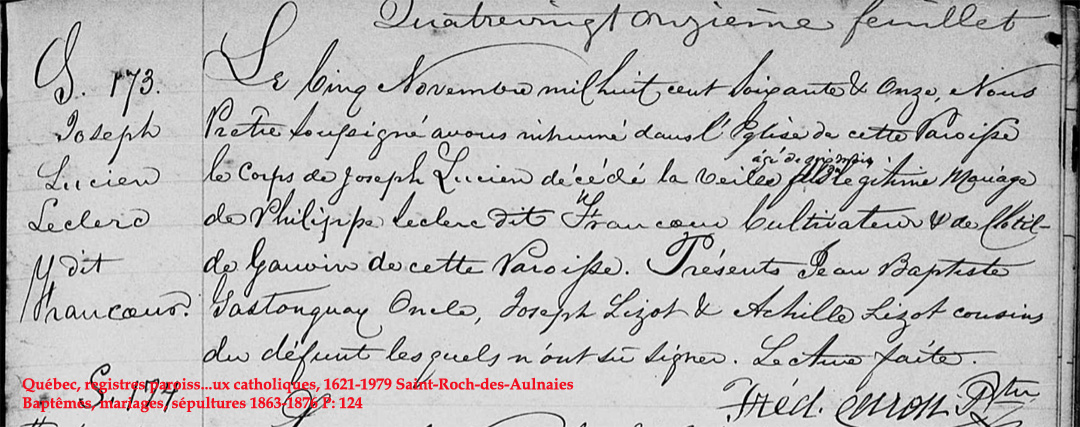 Quatrevingt onzième feuillet
S. 173.
Joseph
Lucien
Leclerc
dit
Francoeur.
Le Cinq Novembre mil huit cent Soixante & Onze, Nous
Prêtre soussigné avons inhumé dans l'Eglise de cette Paroisse
le Corps de Joseph Lucien décédé la veille âgé de mois légitime Mariage
de Philippe Leclerc dit Francoeur Cultivateur & de Clotil-
de Gauvin de cette Paroisse. Présents Jean Baptiste
Gastonguay Oncle, Joseph Lizot & Achille Lizot cousins
du défunt lesquels n'ont su signer. Lecture faite.
Fréd. Caron Ptre
S. 174
Québec, registres paroiss...ux catholiques, 1621-1979 Saint-Roch-des-Aulnaies
Baptêmes, mariages, sépultures 1863-1876 P: 124